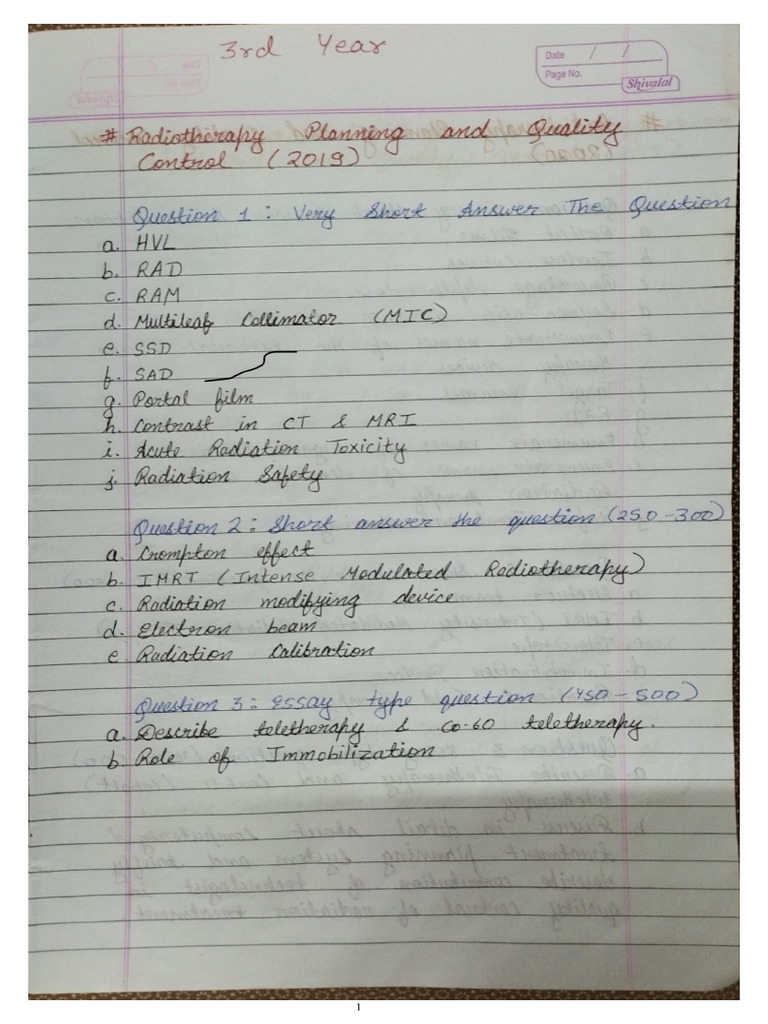 3rd Year
Date / /
Page No.
Shivalal
# Radiotherapy Planning and Quality
Control (2019)
Question 1 : Very Short Answer The Question
a. HVL
b. RAD
c. RAM
d. Multileaf Collimator (MIC)
e. SSD
f. SAD
g. Portal film
h. Contrast in CT & MRI
i. Acute Radiation Toxicity
j. Radiation Safety
Question 2 : Short answer the question (250-300)
a. Crompton effect
b. IMRT (Intense Modulated Radiotherapy)
c. Radiation modifying device
d. Electron beam
e Radiation Calibration
Question 3 : Essay type question (450-500)
a. Describe teletherapy & Co-60 teletherapy.
b. Role of Immobilization
1